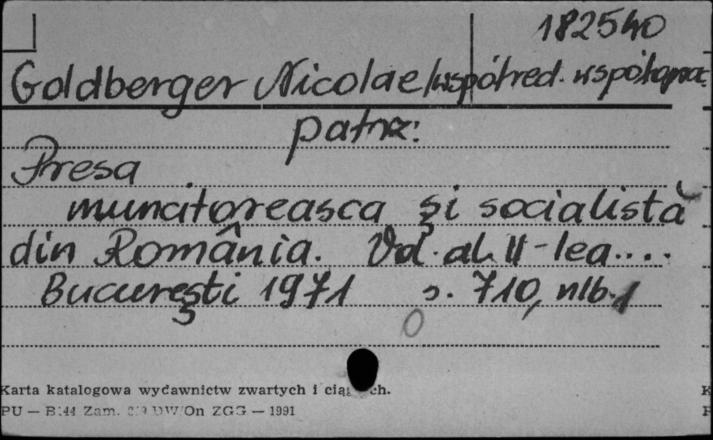 182540
Goldberger Nicolae /współred. współoprac.
patrz:
Presa
muncitoreasca şi socialistă
din România. Vol. al. II-lea....
Bucureşti 1971 s. 710, nlb. 1
Karta katalogowa wydawnictw zwartych i ciągłych.
PU — Zam. DW/On ZGG — 1991